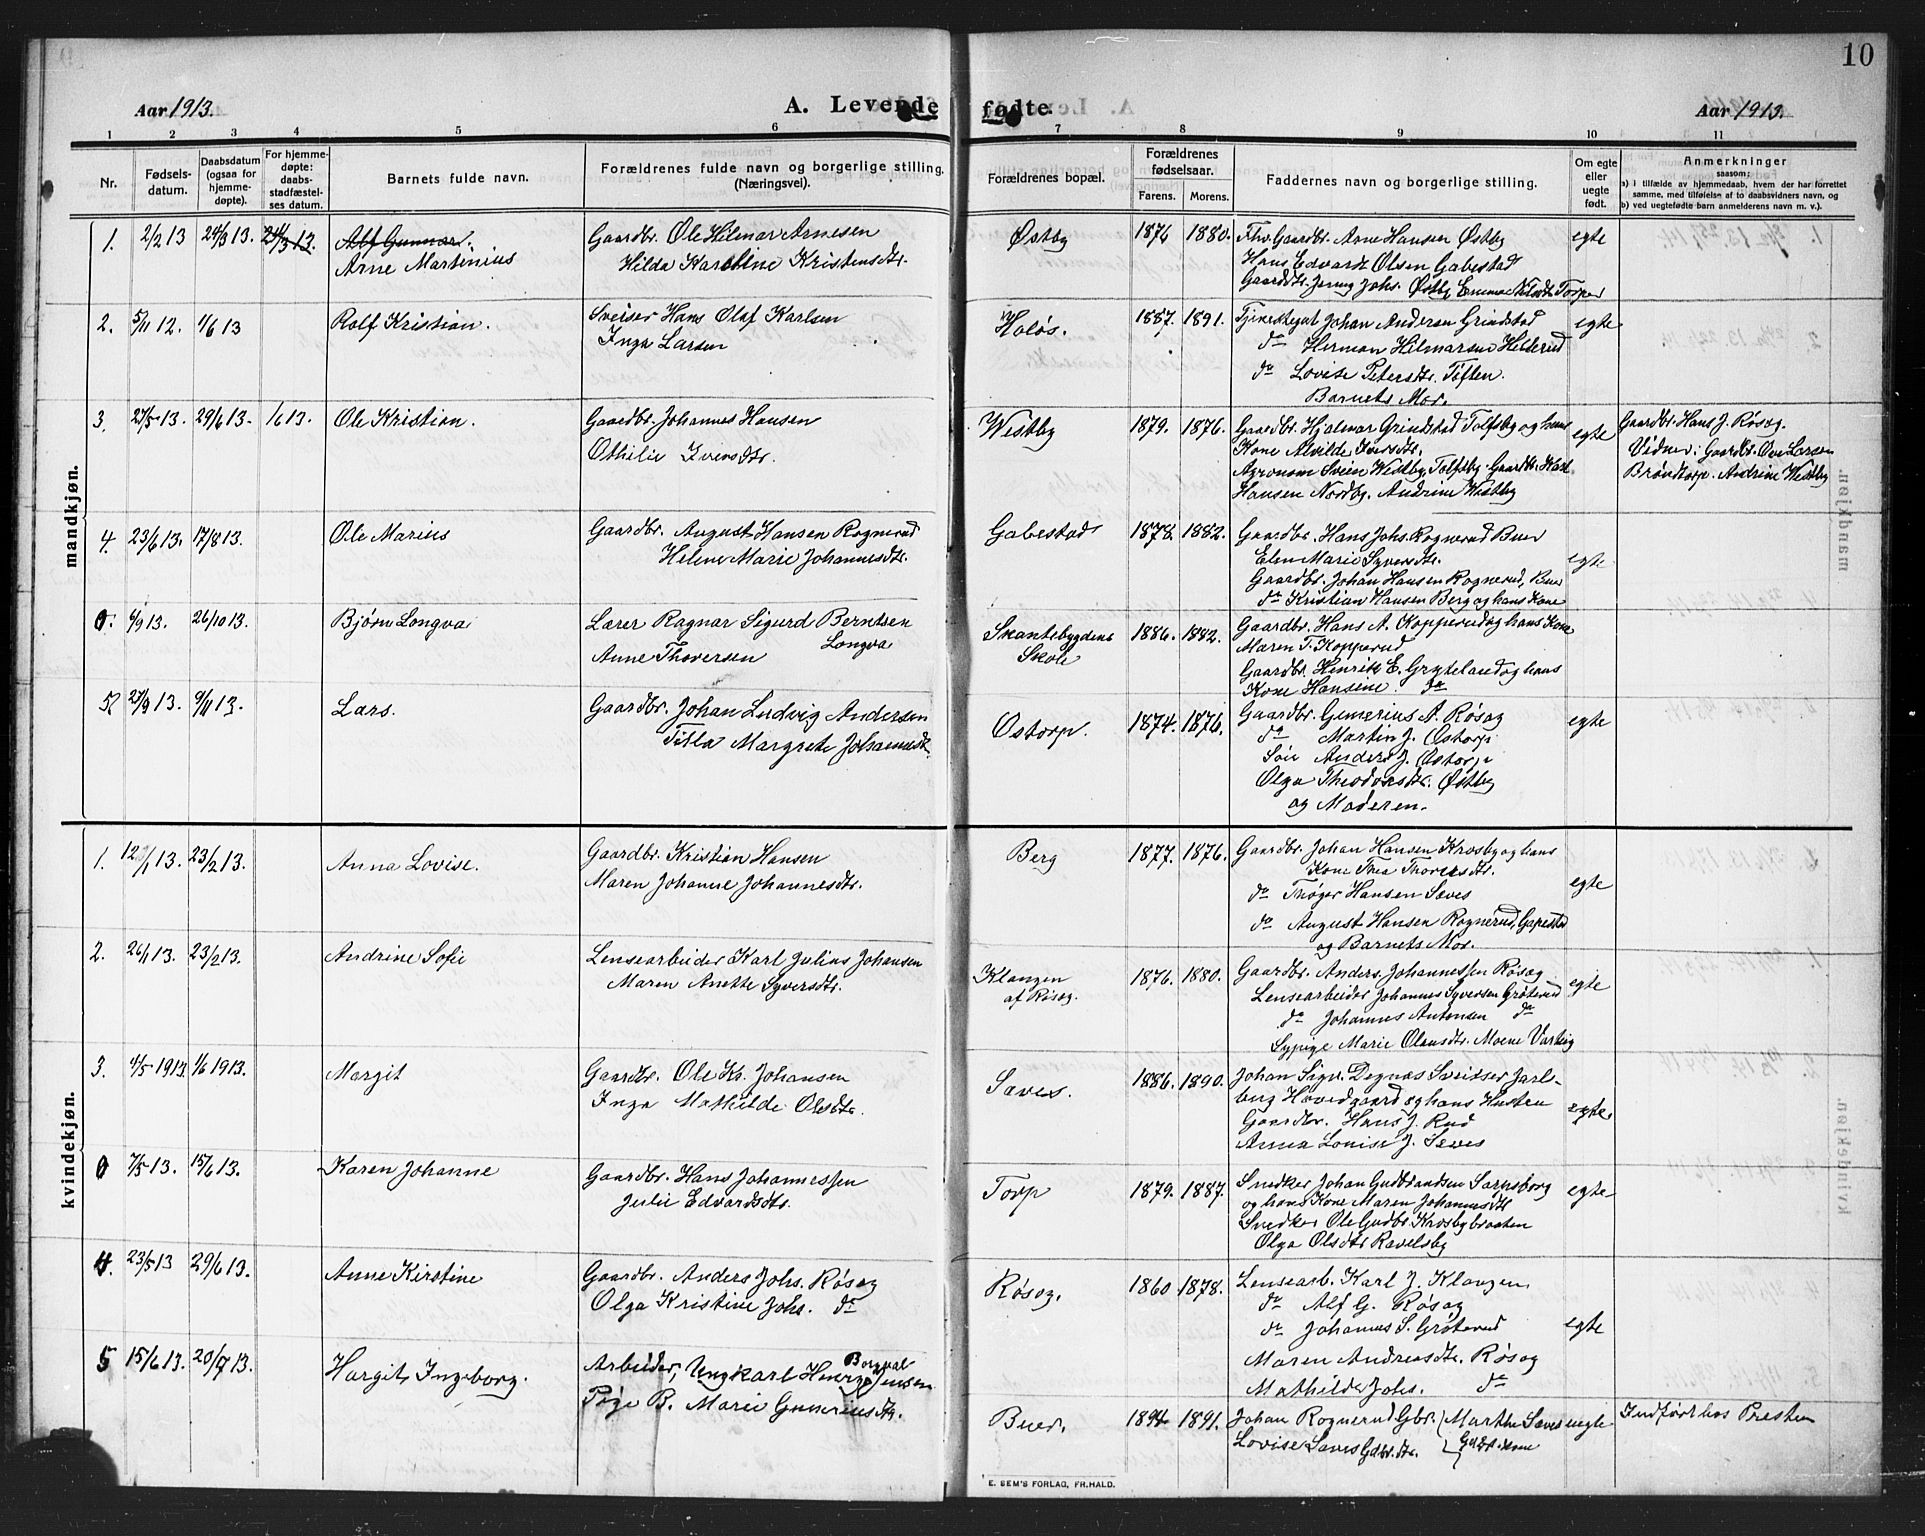 10
Aar 1913.
A. Levende fødte.
Aar 1913.
1 2 3 4 5 6 7 8 9 10 11
Nr.
Fødsels-
datum.
Daabsdatum
(ogsaa for
hjemme-
døpte).
For hjemme-
døpte:
daabs-
stadfæstel-
ses datum.
Barnets fulde navn.
Forældrenes fulde navn og borgerlige stilling.
(Næringsvei).
Forældrenes bopæl.
Forældrenes
fødselsaar.
Farens. Morens.
Faddernes navn og borgerlige stilling.
Om egte
eller
uegte
født.
Anmerkninger
saasom;
a) i tilfælde av hjemmedaab, hvem der har forrettet
samme, med tilføielse af to daabsvidners navn, og
b) ved uegtefødte barn anmelderens navn m. v.).
mandkjøn.
1. 2/2 13 24/3 13. 24/3 13. Alf Gunnar.
Arne Martinius
Gaardbr. Ole Hilmar Arnesen
Hilda Karoline Kristensdtr.
Østby 1876 1880.
Fhv. Gaardbr. Arne Hansen Østby
Hans Edvardt Olsen Gabestad
Gaarddtr. Jenny Johs. Østby Emma Torper
egte
2. 5/11 12. 1/6 13 Rolf Kristian.
Sveiser Hans Olaf Karlsen
Inga Larsen
Holøs. 1887. 1891.
Tjenestegut Johan Andersen Grindstad
do Herman Hilmarsen Helderud
do Lovise Petersdtr. Toften.
Barnets Mor.
egte
3. 27/5 13. 29/6 13. 1/6 13. Ole Kristian.
Gaardbr. Johannes Hansen
Othilie Iversdtr.
Westby 1879. 1876.
Gaardbr. Hjalmar Grindstad Tolfsby og hans
Kone Alvilde Iversdtr.
Agronom Svein Westby, Tolfsby. Gaardbr. Karl
Hansen Nordby. Andrine Westby
egte
Gaardbr. Hans J. Røsæg.
Vidner: Gaardbr. Ove Larsen
Brøndtorp. Andrine Westby
4. 23/6 13. 17/8 13. Ole Marius
Gaardbr. August Hansen Rognerud
Helene Marie Johannesdtr.
Gabestad 1878. 1882.
Gaardbr. Hans Johs. Rognerud Buer
Elen Marie Syversdtr.
Gaardbr. Johan Hansen Rognerud, Buer
do Kristian Hansen Berg og hans Kone
egte
0. 6/9 13. 26/10 13. Bjørn Longva
Lærer Ragnar Sigurd Berntsen
Longva
Anne Thoresen
Skantebygdens
Skole
1886. 1882.
Gaardbr. Hans A. Kopperud og hans Kone
Maren T. Kopperud
Gaardbr. Henrik E. Gryteland og hans
Kone Hansine do
5. 27/9 13. 9/11 13. Lars.
Gaardbr. Johan Ludvig Andersen
Tilla Margrete Johannesdtr.
Ostorp. 1874. 1876.
Gaardbr. Gunerius A. Røsæg
do Martin J. Østorp
Søn Anders J. Ostorp
Olga Theodorsdtr. Østby
og Moderen.
egte
kvindekjøn.
1. 12/1 13. 23/2 13. Anna Lovise.
Gaardbr. Kristian Hansen
Maren Johanne Johannesdtr.
Berg 1877. 1876.
Gaardbr. Johan Hansen Krosby og hans
Kone Thea Thoresdtr.
do Thøger Hansen Sæves
do August Hansen Rognerud, Gapestad
og Barnets Mor.
egte
2. 26/1 13. 23/2 13. Andrine Sofie
Lensearbeider Karl Julius Johansen
Maren Anette Syversdtr.
Klangen
af Røsæg.
1876. 1880.
Gaardbr. Anders Johannessen Røsæg
Lensearbeider Johannes Syversen Grøterud
do Johannes Antonsen do
Sypige Marie Olausdtr. Moene Varteig
egte
3. 4/5 1913. 1/6 1913. Margit
Gaardbr. Ole Kr. Johansen
Inga Mathilde Olsdtr.
Sæves. 1886. 1890.
Johan Sigv. Degnæs Sveitser Jarls-
berg Hovedgaard og hans Husten
Gaardbr. Hans J. Rud
Anna Louise J. Sæves
egte
0 7/5 13. 15/6 13. Karen Johanne
Gaardbr. Hans Johannessen
Julie Edvardsdtr.
Torp 1879. 1887.
Snedker Johan Gudbrandsen Sarpsborg
og hans Kone Maren Johannesdtr
Snedker Ole Gudbr. Krosbybraaten
Olga Olsdtr Ravelsby
egte
4. 23/5 13 29/6 13. Anne Kirstine
Gaardbr. Anders Johs. Røsæg
Olga Kristine Johs. do
Røsæg. 1860 1878.
Lensearb. Karl J. Klangen
do Alf G. Røsæg
do Johannes S. Grøterud
Maren Andreasdtr. Røsæg
Mathilde Johs. do
egte
5 15/6 13. 20/7 13. Hargit, Ingeborg.
Arbeider, Ungkarl Henry Borgval Jensen
Pige B. Marie Guneriusdtr.
Buer. 1894 1891.
Johan Rognerud Gbr. Marthe Sæves
Lovise Sæves Gdbr.dtr. Gdbr. kone
uegte
Indført hos Presten
E. SEM'S FORLAG, FR.HALD.